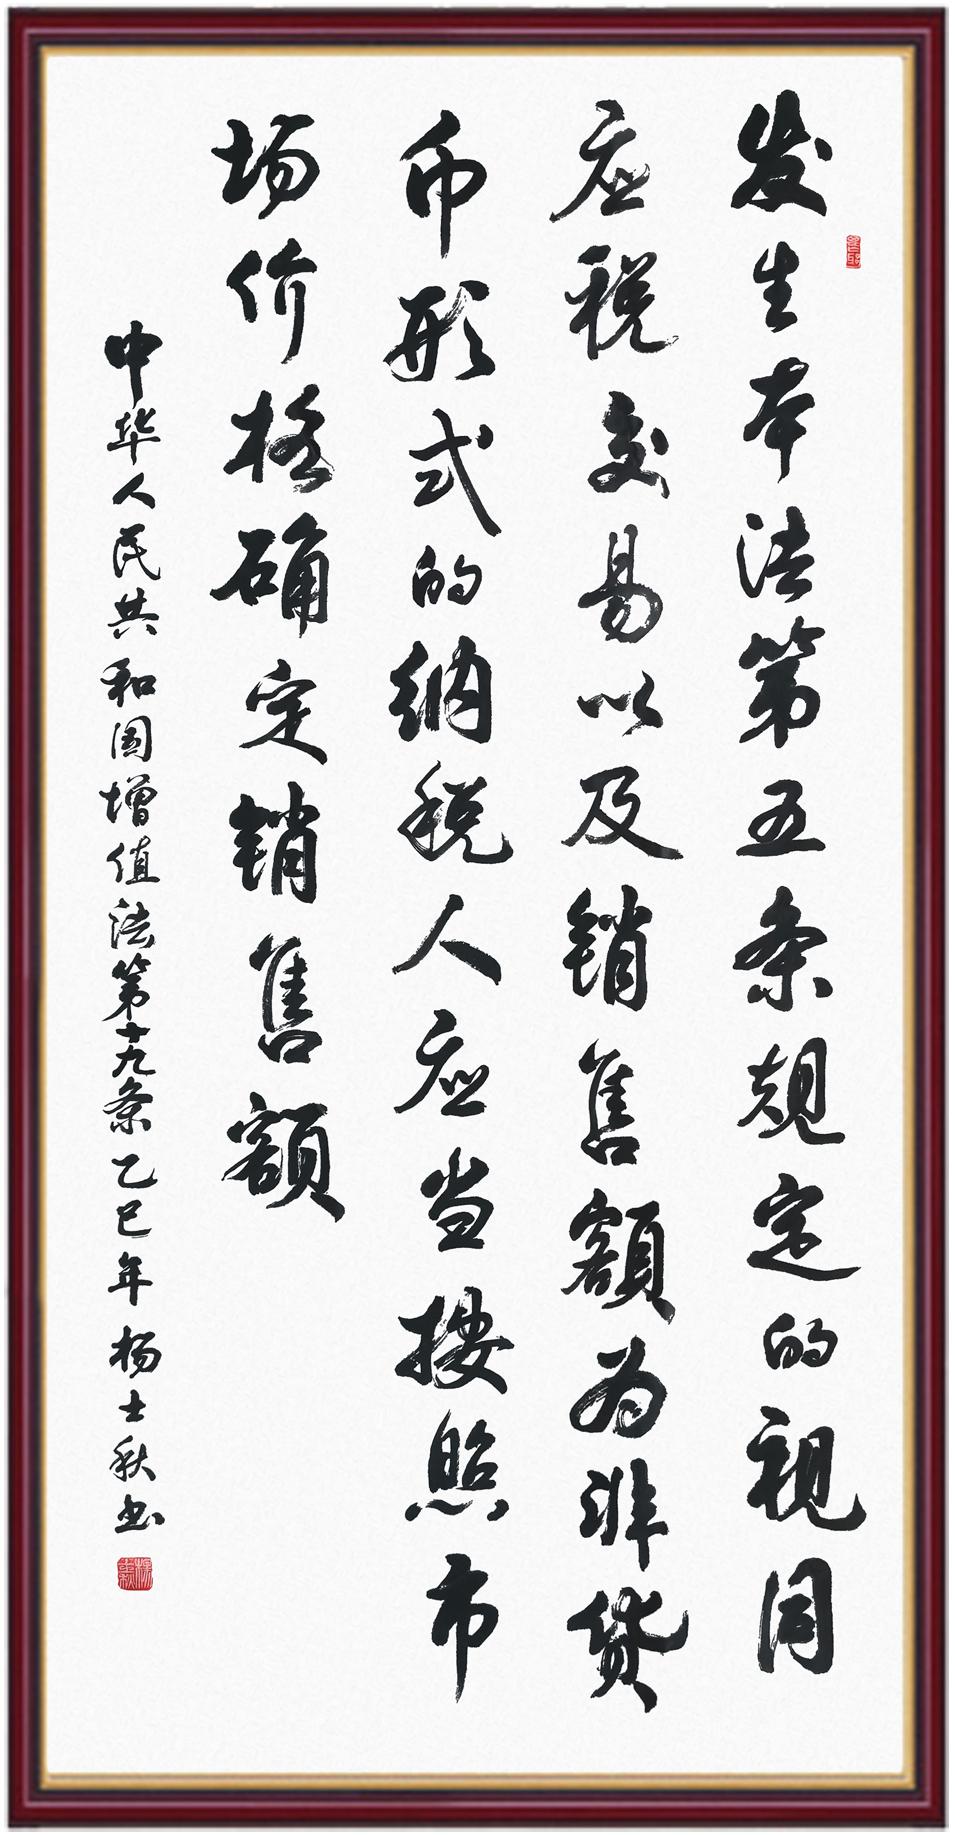 发生本法第五条规定的视同
应税交易以及销售额为非货
币形式的纳税人应当按照市
场价格确定销售额
中华人民共和国增值法第十九条乙巳年杨士秋书